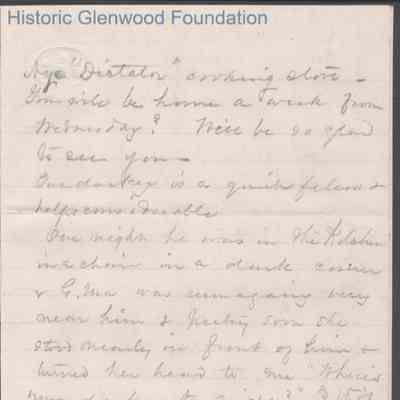 Historic Glenwood Foundation
Aye "Dictator" cooking stove -
You will be home a week from
Wednesday? We'll be so glad
to see you -
Our darkey is a quick fellow &
helps considerable
One night he was in the Kitchen
in a chair in a dark corner
& G.Ma was running very
near him & pretty soon she
stood nearly in front of him &
turned her head to me "Where's